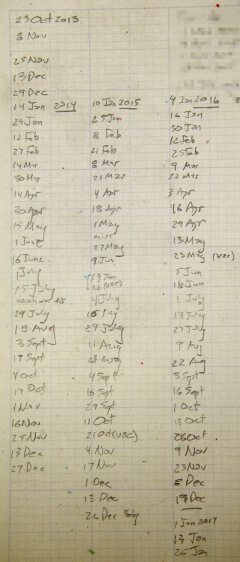 23 Oct 2013
3 Nov
25 Nov
13 Dec
29 Dec
14 Jan 2014
29 Jan
12 Feb
27 Feb
14 Mar
30 Mar
14 Apr
30 Apr
15 May
1 June
16 June
1 July
15 July
29 July
18 Aug
3 Sept
19 Sept
4 Oct
17 Oct
1 Nov
16 Nov
29 Nov
13 Dec
27 Dec
10 Jan 2015
25 Jan
8 Feb
21 Feb
8 Mar
21 Mar
4 Apr
18 Apr
1 May
27 May
9 Jun
19 Jun
4 July
15 July
29 July
11 Aug
4 Sept
16 Sept
29 Sept
11 Oct
21 Oct (vac)
4 Nov
17 Nov
1 Dec
12 Dec
26 Dec
4 Jan 2016
16 Jan
30 Jan
12 Feb
25 Feb
9 Mar
22 Mar
3 Apr
16 Apr
29 Apr
13 May
23 May (vac)
5 Jun
18 Jun
1 July
14 July
27 July
9 Aug
22 Aug
3 Sept
16 Sept
1 Oct
13 Oct
26 Oct
9 Nov
23 Nov
6 Dec
19 Dec
1 Jan 2017
13 Jan
26 Jan